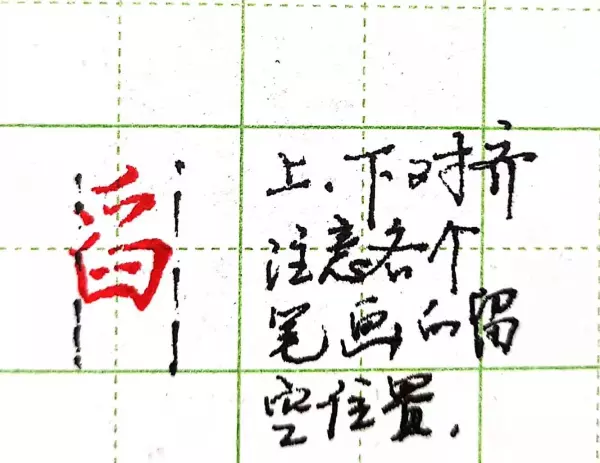 上、下对齐
注意各个
笔画的留
空位置.